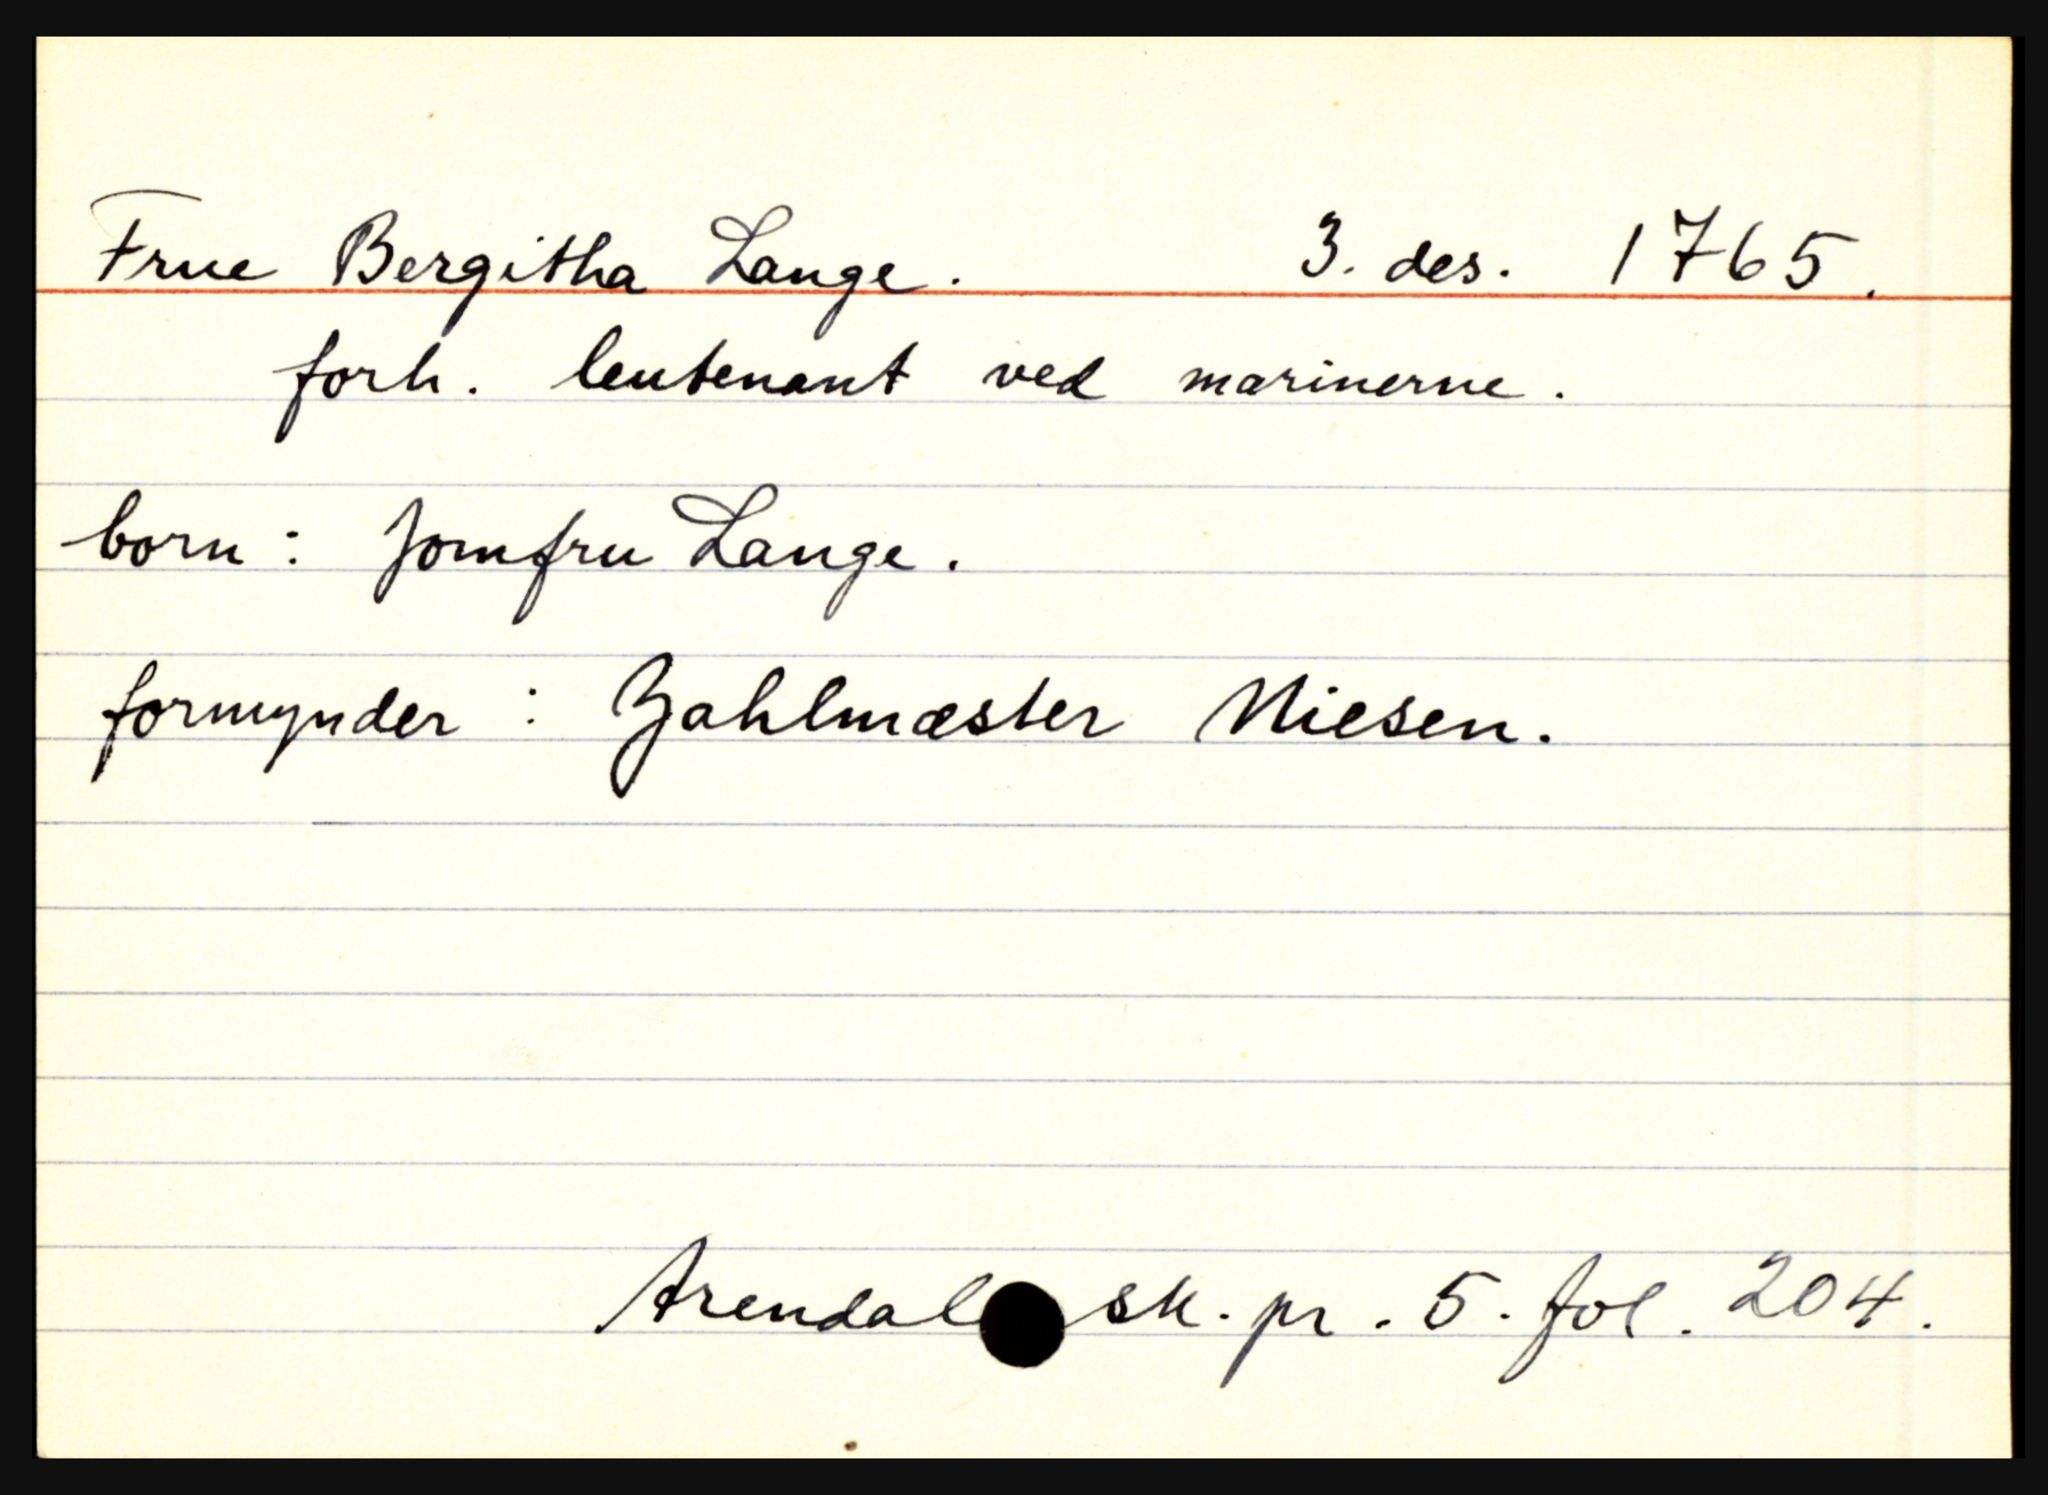 Frue Bergitha Lange. 3. des. 1765.
forh. leutenant ved marinerne.
born: Jomfru Lange.
formynder: Zahlmæster Niesen.
Arendal sk. pr. 5. fol. 204.